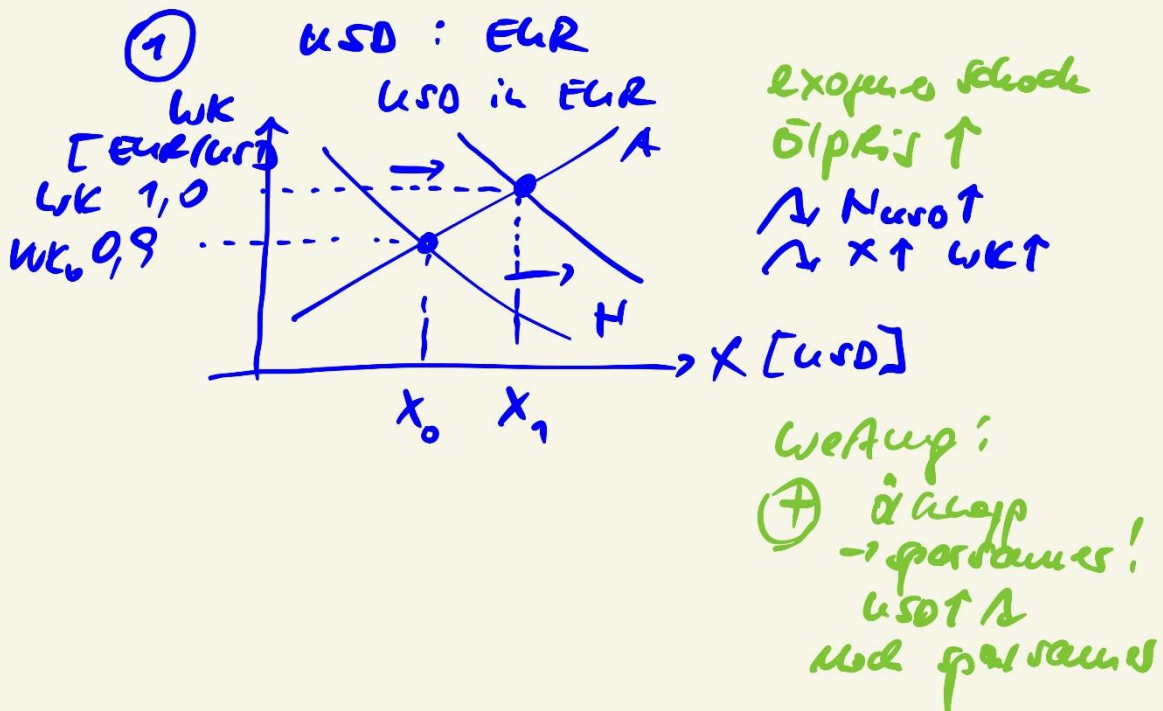 ① USD : EUR
USD in EUR
WK
[EUR/USD]
WK 1,0
WK₀ 0,9
A
N
X [USD]
X₀ X₁
exogener Schock
Ölpreis ↑
N USD ↑
X ↑ WK ↑
Wertung:
⊕ Öl knapp
→ sparsamer!
USD ↑
noch sparsamer